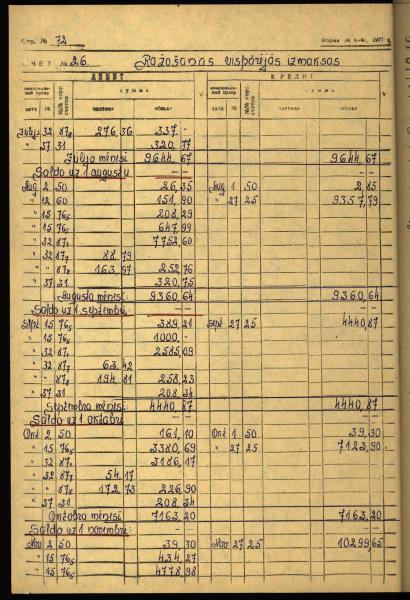 Стр. № 72 Форма № К-41, 1977
СЧЕТ № 26. Ražošanas vispārējās izmaksas
ДЕБЕТ КРЕДИТ
сумма сумма
дата № частная общая дата № частная общая
Jūlijs 32 87₈ 276,36 337.-
" 37 31 320,77
Jūlijo mēnesī 9644,67 9644,67
Saldo uz 1 augustu -- --
Aug 2 50 26,35 Aug 1 50 2,85
" 12 60 151,90 " 27 25 9357,79
" 15 76₅ 208,29
" 15 76₅ 647,99
" 32 87₁ 7752,60
" 32 87₁ 88,79
" " 87₈ 163,97 252,76
" 37 31 320,75
Augusta mēnesī 9360,64 9360,64
Saldo uz 1 septembri -- --
Sept 15 76₅ 389,21 Sept 27 25 4440,87
" 15 76₅ 1000,-
" 32 87₁ 2585,09
" 32 87₁ 63,42
" " 87₈ 194,81 258,23
" 37 31 208,34
Septembra mēnesī 4440,87 4440,87
Saldo uz 1 oktobri -- --
Okt 2 50 161,10 Okt 1 50 39,30
" 15 76₅ 3380,69 " 27 25 7123,90
" 32 87₁ 3186,17
" 32 87₁ 54,17
" " 87₈ 172,73 226,90
" 37 31 208,34
Oktobra mēnesī 7163,20 7163,20
Saldo uz 1 novembri -- --
Nov 2 50 39,30 Nov 27 25 10299,65
" 15 76₅ 434,27
" 15 76₅ 4778,98